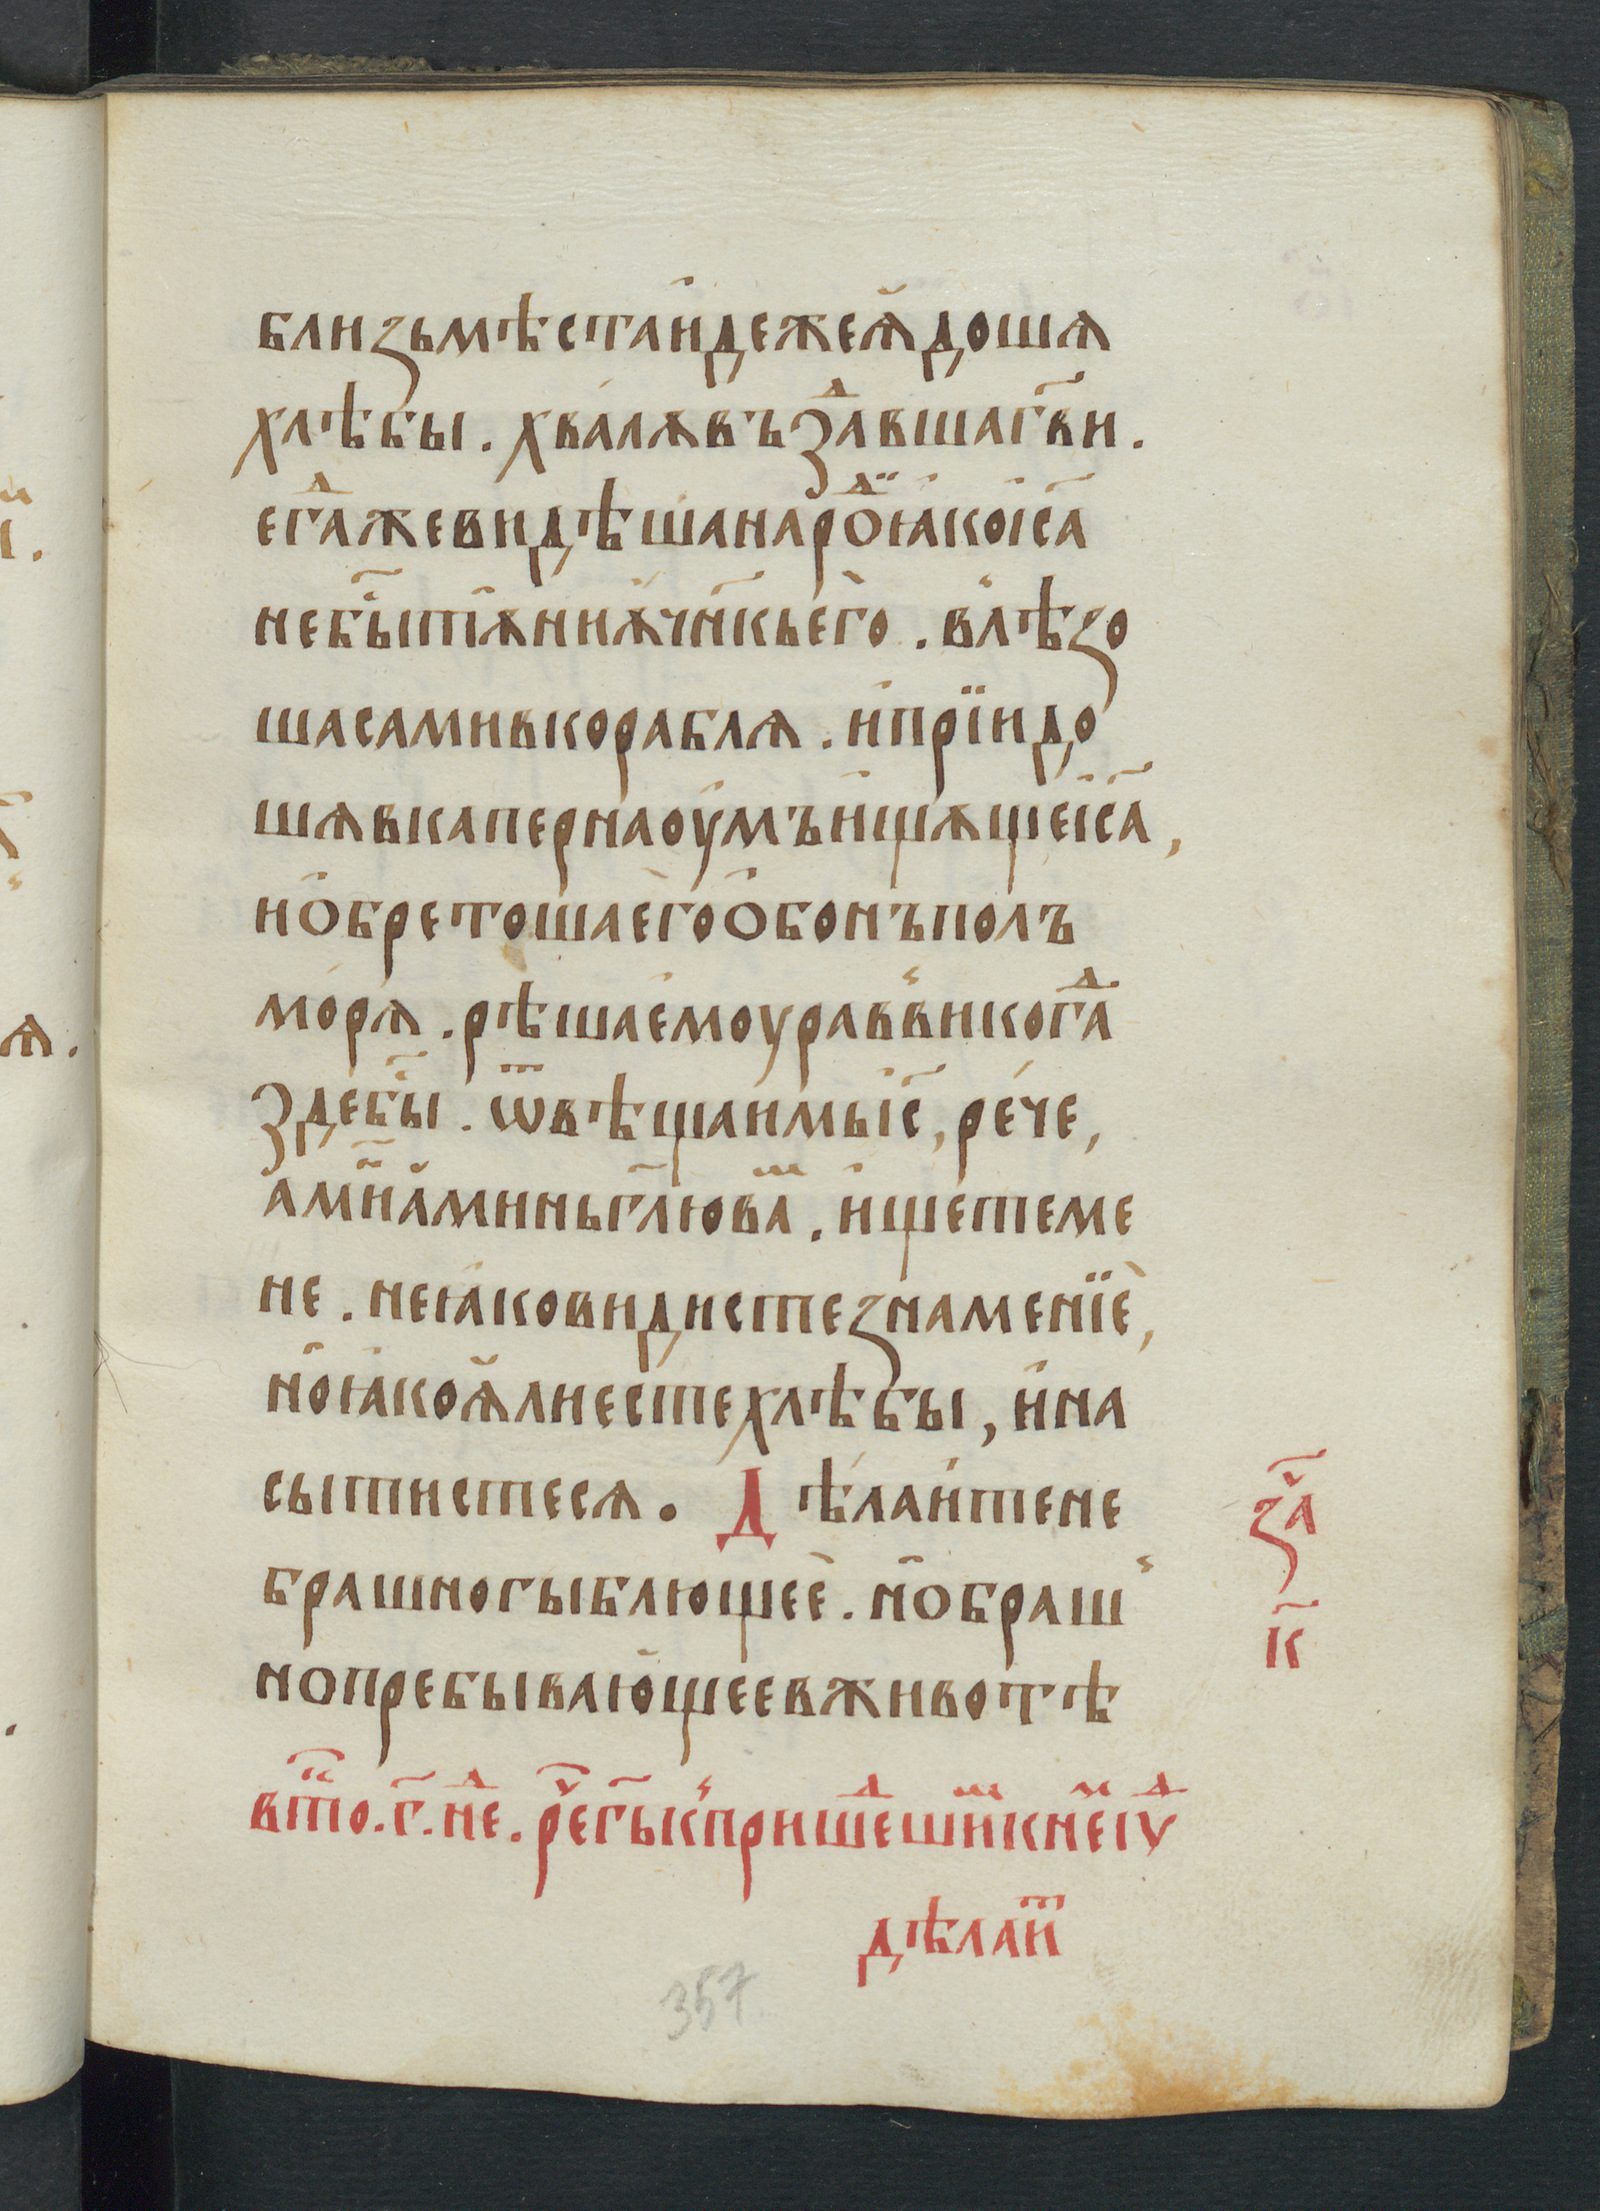 близьмѣстаи҆дежеꙗ҆дошѧ
хлѣбы. хвалѫвъꙁⷣавшаг҃ви.
ег҆ⷣажевидѣшанароⷣꙗкоі҆с҃а
неб҃ытѫниѫч҃нкьег҆о. вл҆ѣзо
шасамивкораблѧ. и҆прїидо
шѧвкапернаоумъи҆щѫщеі҆с҃а,
ио҆бретошаег҆оо҆бонъполъ
морѧ. рѣшаемоуравв҆икогⷣа
ꙁдеб҃ы. ѿвѣщаимьі҆с҃, ре́че,
ам҃нам҆иньгл҃ювⷨа. и҆щетеме
не. неꙗковидистезнаменїе,
но҆ꙗкоꙗ҆листехлѣбы, и҆на
сытистесѧ. Дѣлаитене
брашногыблющее҆. но҆браш
нопребывающеевживотѣ
вт҃о. г҃. нⷣе. р҃ег҃ькпришⷣешиⷨкнеⷨіѹⷣ
дѣлаиⷮ
ꙁ҃а
к҃
357